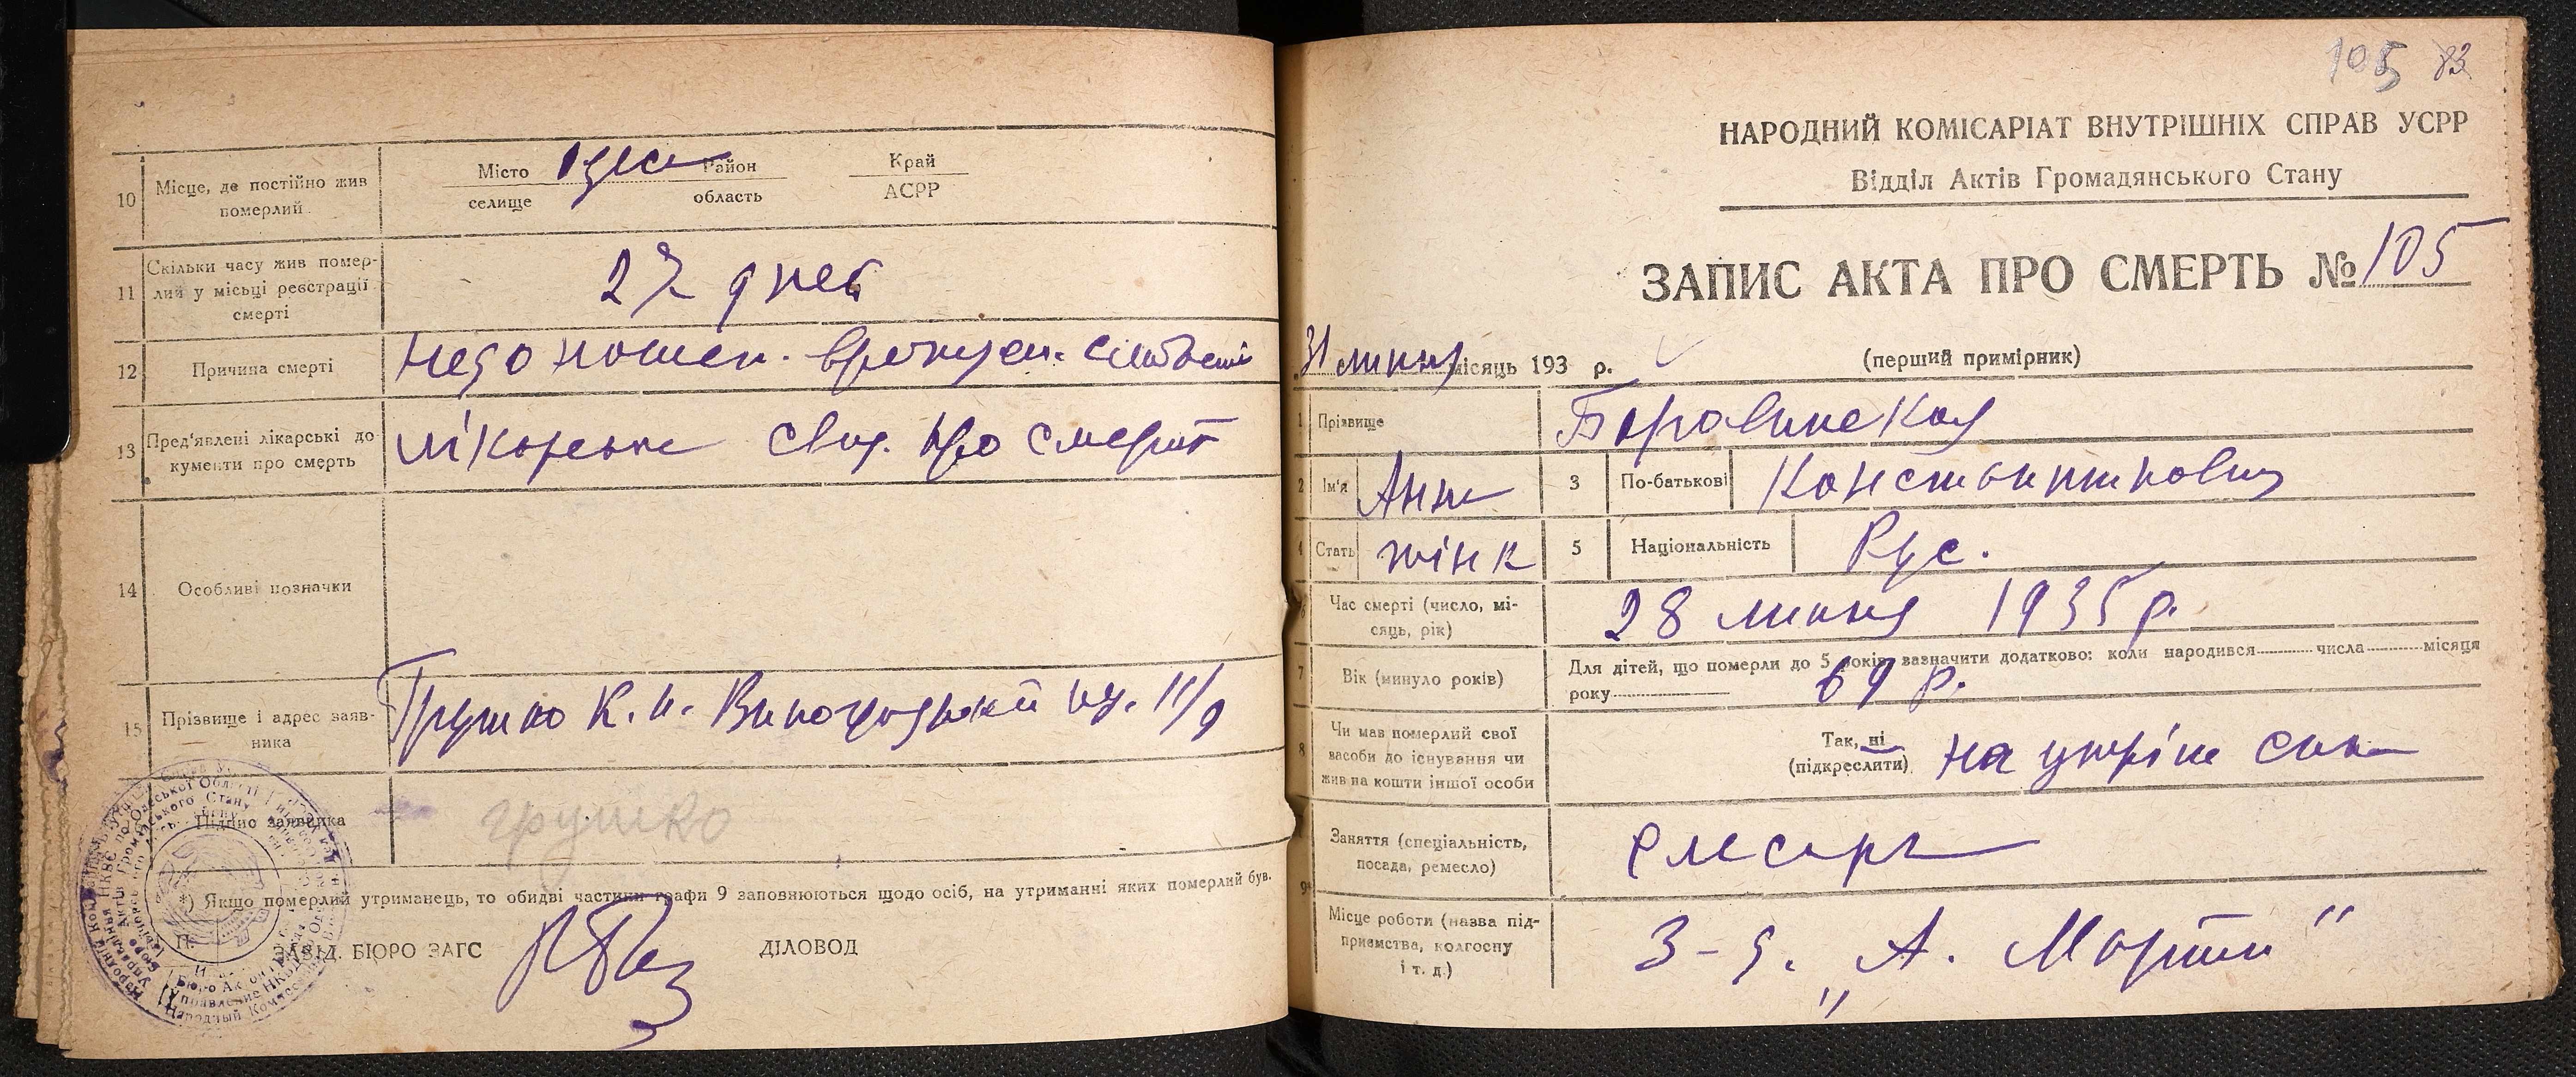 10
Місце, де постійно жив
померлий
Місто Одеса Район
селище область
Край
АСРР
11
Скільки часу жив помер-
лий у місьці реєстрації
смерті
27 дней
12
Причина смерті
Недоношен. врожден. слабост
13
Пред'явлені лікарські до
кументи про смерть
лікарське свид. про смерть
14
Особливі позначки
15
Прізвище і адрес заяв-
ника
Грушко К. И. 11/9
Підпис заявника
грушко
*) Якщо померлий утриманець, то обидві частини графи 9 заповнюються щодо осіб, на утриманні яких померлий був.
П.
ЗАВІД. БЮРО ЗАГС
ДІЛОВОД
105 83
НАРОДНИЙ КОМІСАРІАТ ВНУТРІШНІХ СПРАВ УСРР
Відділ Актів Громадянського Стану
ЗАПИС АКТА ПРО СМЕРТЬ № 105
31 липня місяць 193 р.
(перший примірник)
1
Прізвище
Боровинская
2
Ім'я
Анна
3
По-батькові
Константиновна
4
Стать
жінк
5
Національність
Рус.
6
Час смерті (число, мі-
сяць, рік)
28 липня 1935 р.
7
Вік (минуло років)
Для дітей, що померли до 5 років, зазначити додатково: коли народився числа місяця
року
69 р.
8
Чи мав померлий свої
засоби до існування чи
жив на кошти іншої особи
Так, ні
(підкреслити)
на утрім сина
9*
Заняття (спеціальність,
посада, ремесло)
слесарь
Місце роботи (назва під-
приємства, колгоспу
і т. д.)
З-д. „А. Марти"